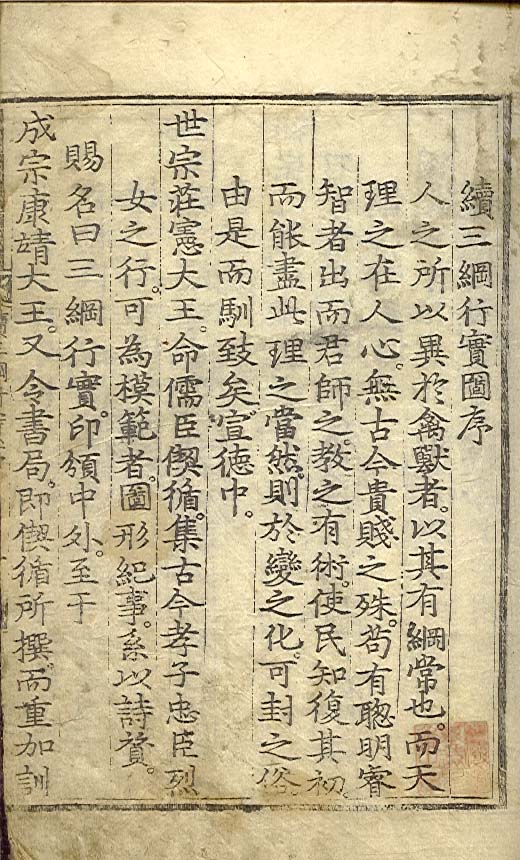 續三綱行實圖序
人之所以異於禽獸者。以其有綱常也。而天
理之在人心。無古今貴賤之殊。苟有聰明睿
智者出而君師之。教之有術。使民知復其初。
而能盡此理之當然。則於變之化。可封之俗
由是而馴致矣。宣德中。
世宗莊憲大王。命儒臣偰循。集古今孝子忠臣烈
女之行。可為模範者。圖形紀事。系以詩贊。
賜名曰三綱行實。印頒中外。至于
成宗康靖大王。又令書局。即偰循所撰而重加訓